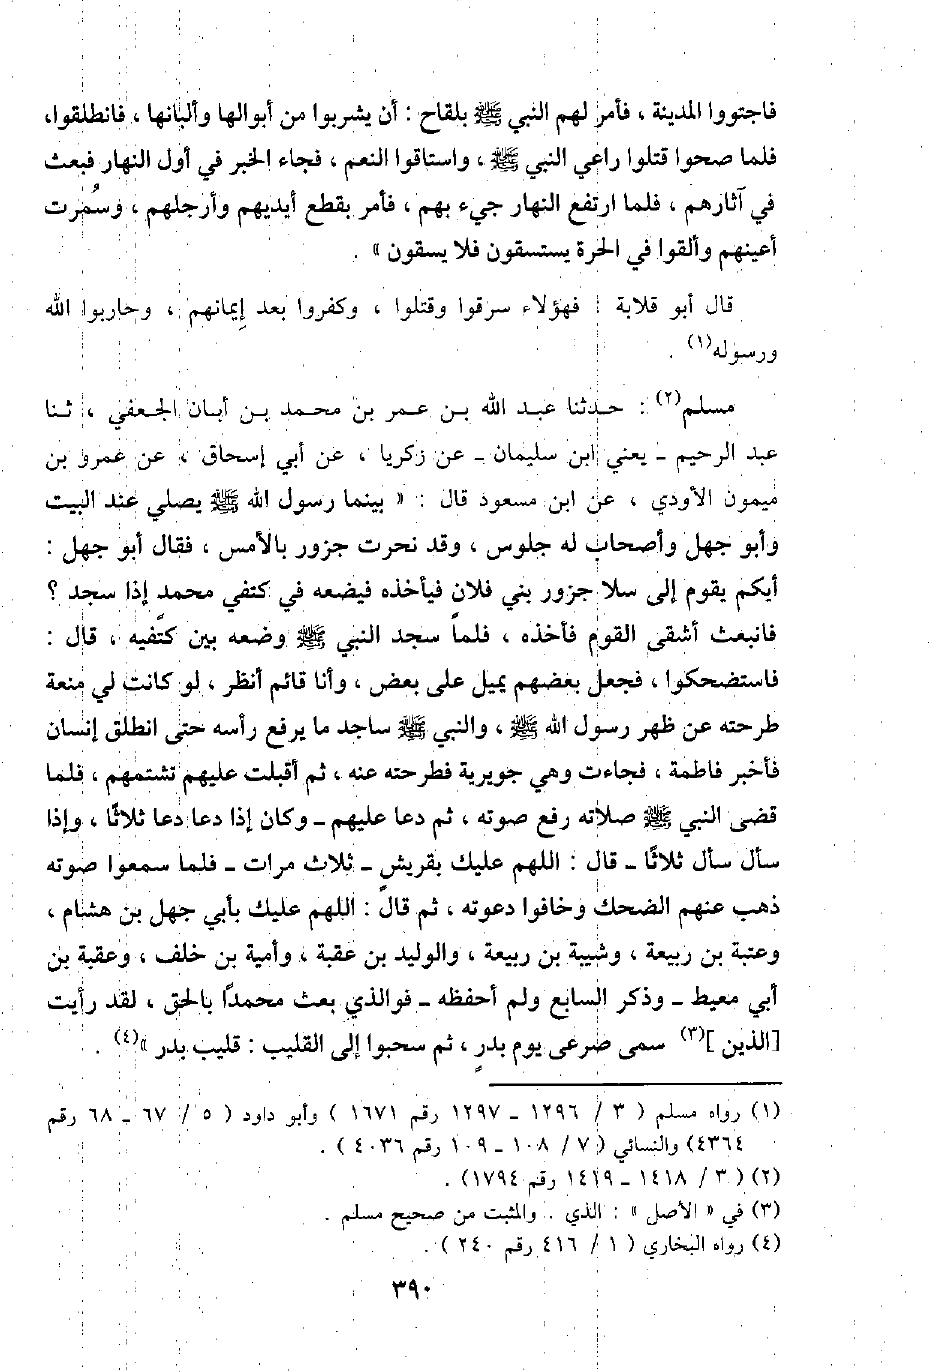 فاجتووا المدينة ، فأمر لهم النبي ﷺ بلقاح : أن يشربوا من أبوالها وألبانها ، فانطلقوا،
فلما صحوا قتلوا راعي النبي ﷺ ، واستاقوا النعم ، فجاء الخبر في أول النهار فبعث
في آثارهم ، فلما ارتفع النهار جيء بهم ، فأمر بقطع أيديهم وأرجلهم ، وسُمرت
أعينهم وألقوا في الحرة يستسقون فلا يسقون » .
قال أبو قلابة : فهؤلاء سرقوا وقتلوا ، وكفروا بعد إيمانهم ، وحاربوا الله
ورسوله(١) .
مسلم(٢) : حدثنا عبد الله بن عمر بن محمد بن أبان الجعفي ، ثنا
عبد الرحيم ـ يعني ابن سليمان ـ عن زكريا ، عن أبي إسحاق ، عن عمرو بن
ميمون الأودي ، عن ابن مسعود قال : « بينما رسول الله ﷺ يصلي عند البيت
وأبو جهل وأصحاب له جلوس ، وقد نحرت جزور بالأمس ، فقال أبو جهل :
أيكم يقوم إلى سلا جزور بني فلان فيأخذه فيضعه في كتفي محمدٍ إذا سجد ؟
فانبعث أشقى القوم فأخذه ، فلما سجد النبي ﷺ وضعه بين كتفيه ، قال :
فاستضحكوا ، فجعل بعضهم يميل على بعض ، وأنا قائم أنظر ، لو كانت لي منعة
طرحته عن ظهر رسول الله ﷺ ، والنبي ﷺ ساجد ما يرفع رأسه حتى انطلق إنسان
فأخبر فاطمة ، فجاءت وهي جويرية فطرحته عنه ، ثم أقبلت عليهم تشتمهم ، فلما
قضى النبي ﷺ صلاته رفع صوته ، ثم دعا عليهم ـ وكان إذا دعا دعا ثلاثًا ، وإذا
سأل سأل ثلاثًا ـ قال : اللهم عليك بقريشٍ ـ ثلاث مرات ـ فلما سمعوا صوته
ذهب عنهم الضحك وخافوا دعوته ، ثم قال : اللهم عليك بأبي جهل بن هشام ،
وعتبة بن ربيعة ، وشيبة بن ربيعة ، والوليد بن عقبة ، وأمية بن خلف ، وعقبة بن
أبي معيط ـ وذكر السابع ولم أحفظه ـ فوالذي بعث محمدًا بالحق ، لقد رأيت
[الذين ](٣) سمى صرعى يوم بدرٍ ، ثم سحبوا إلى القليب : قليب بدر »(٤) .
(١) رواه مسلم ( ٣ / ١٢٩٦ ـ ١٢٩٧ رقم ١٦٧١ ) وأبو داود ( ٥ / ٦٧ ـ ٦٨ رقم
٤٣٦٤) والنسائي ( ٧ / ١٠٨ ـ ١٠٩ رقم ٤٠٣٦ ) .
(٢) ( ٣ / ١٤١٨ ـ ١٤١٩ رقم ١٧٩٤) .
(٣) في « الأصل » : الذي . والمثبت من صحيح مسلم .
(٤) رواه البخاري ( ١ / ٤١٦ رقم ٢٤٠ ) .
٣٩٠